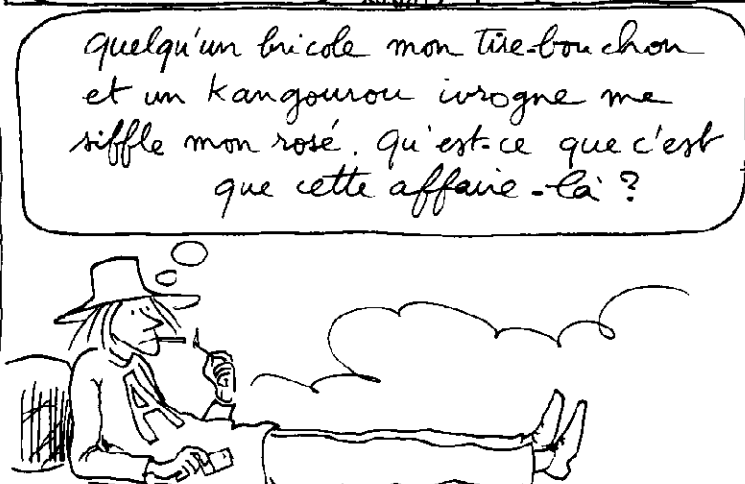 quelqu'un bricole mon tire-bouchon
et un kangourou ivrogne me
siffle mon rosé. qu'est-ce que c'est
que cette affaire-là ?
A